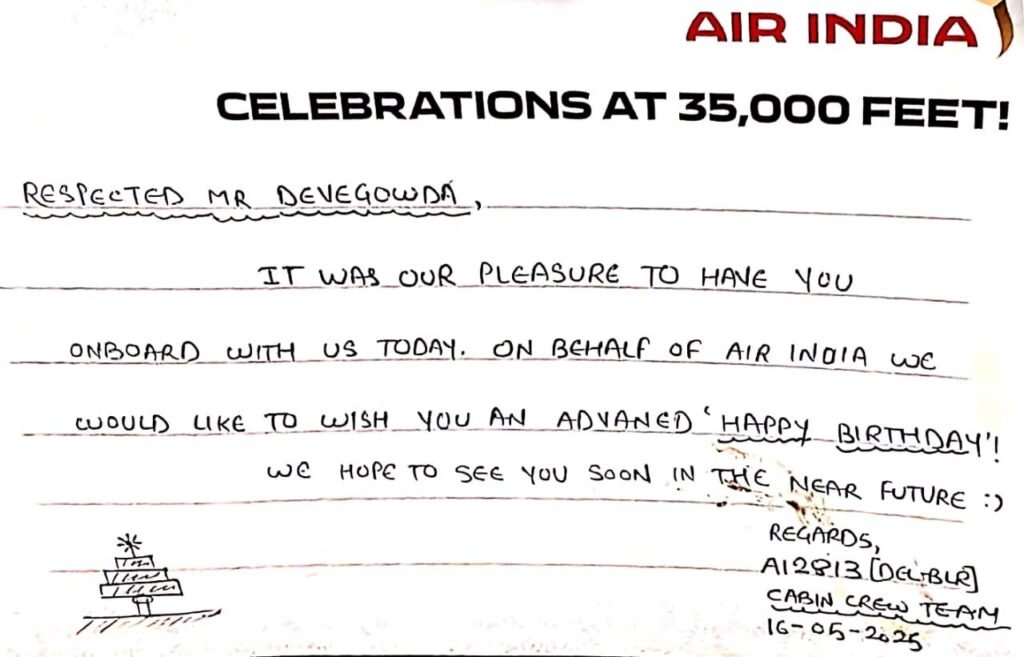 AIR INDIA
CELEBRATIONS AT 35,000 FEET!
RESPECTED MR DEVEGOWDA,
IT WAS OUR PLEASURE TO HAVE YOU
ONBOARD WITH US TODAY. ON BEHALF OF AIR INDIA WE
WOULD LIKE TO WISH YOU AN ADVANED 'HAPPY BIRTHDAY'!
WE HOPE TO SEE YOU SOON IN THE NEAR FUTURE :)
REGARDS,
AI2813 [DEL-BLR]
CABIN CREW TEAM
16-05-2025